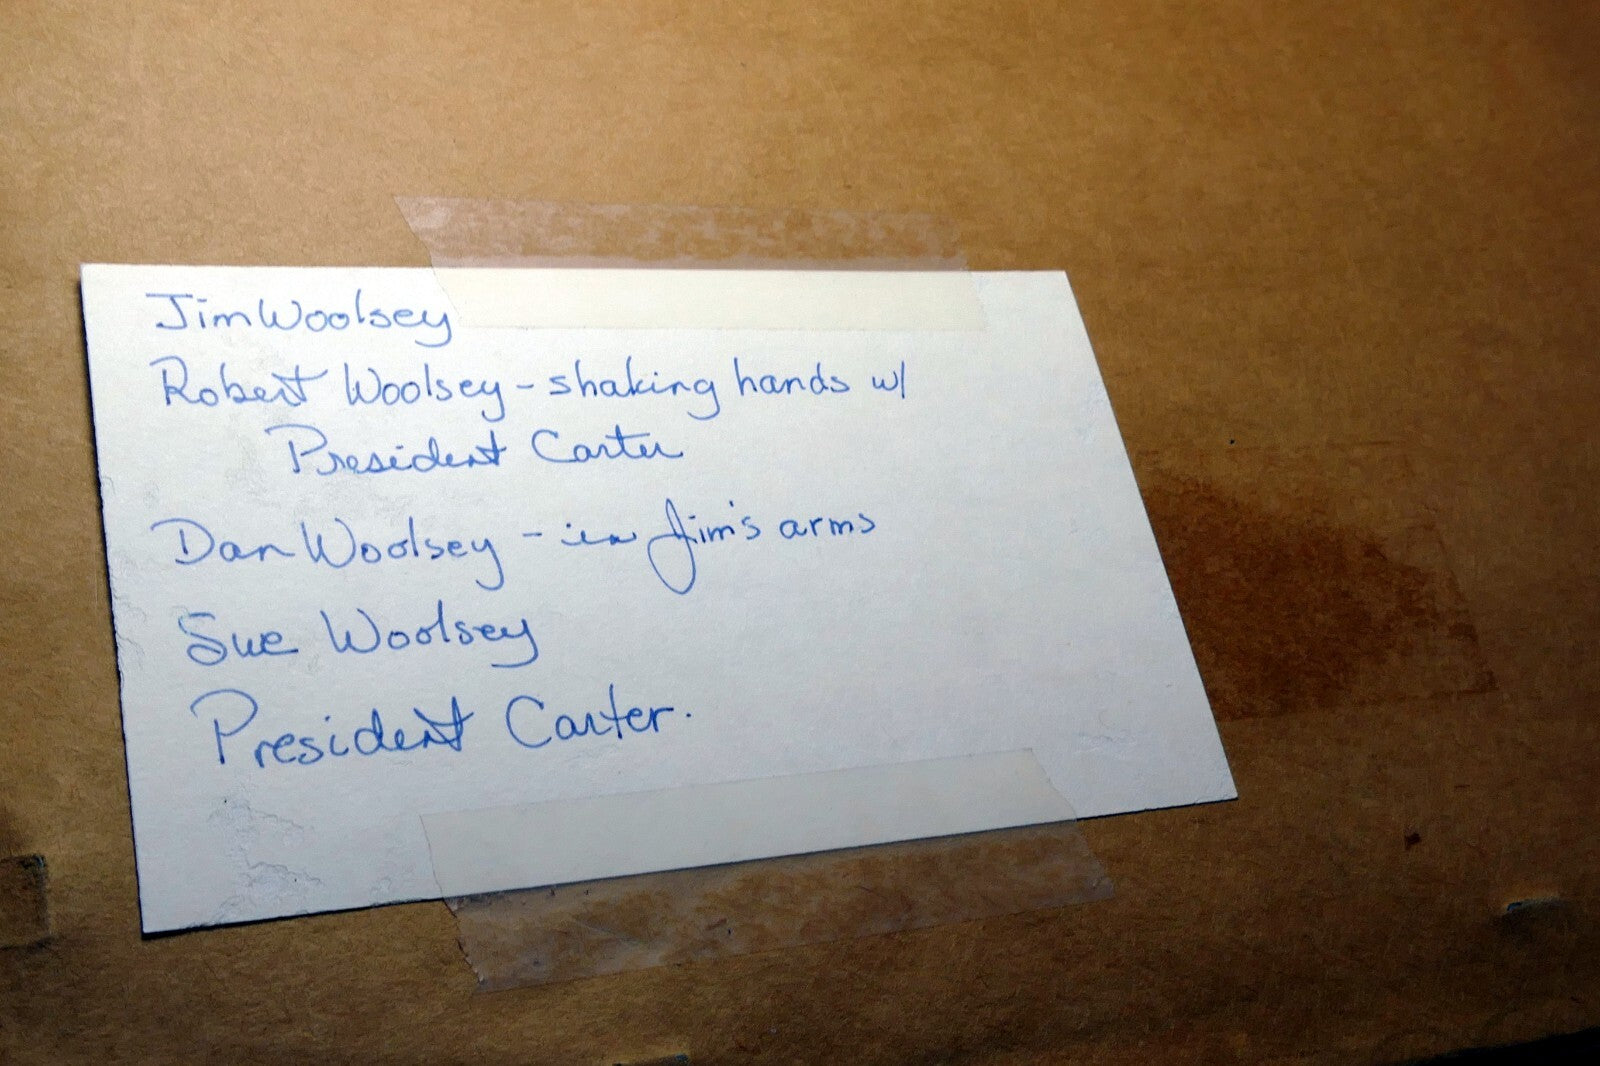 Jim Woolsey
Robert Woolsey - shaking hands w/
President Carter
Dan Woolsey - in Jim's arms
Sue Woolsey
President Carter.